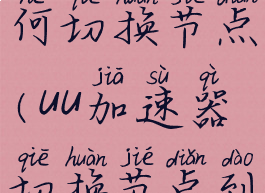 hé qiē huàn jié diǎn
何切换节点
jiā sù qì
(UU加速器
qiē huàn jié diǎn dào
切换节点到